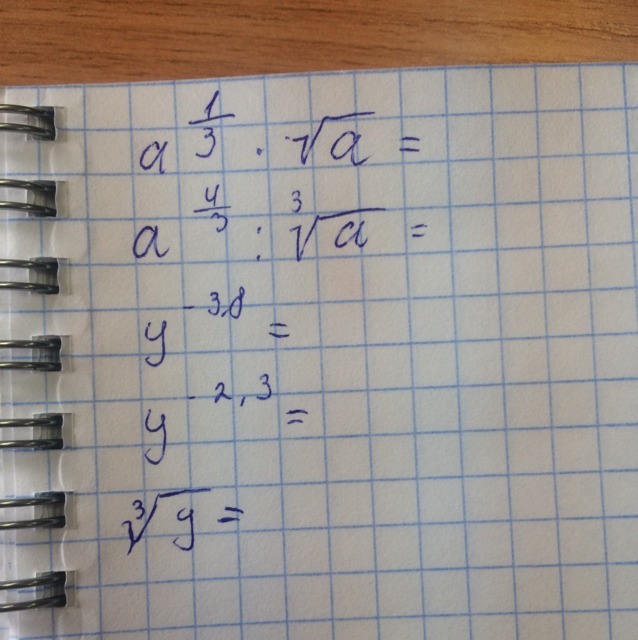 a^{\frac{1}{3}} \cdot \sqrt{a} =
a^{\frac{4}{3}} : \sqrt[3]{a} =
y^{-3,8} =
y^{-2,3} =
\sqrt[3]{y} =